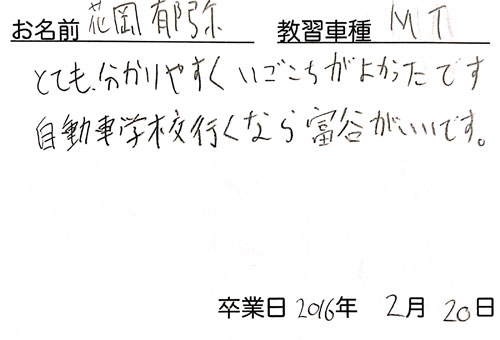 お名前 花岡郁弥 教習車種 MT
とても、分かりやすくいごこちがよかったです
自動車学校行くなら富谷がいいです。
卒業日 2016年 2月 20日